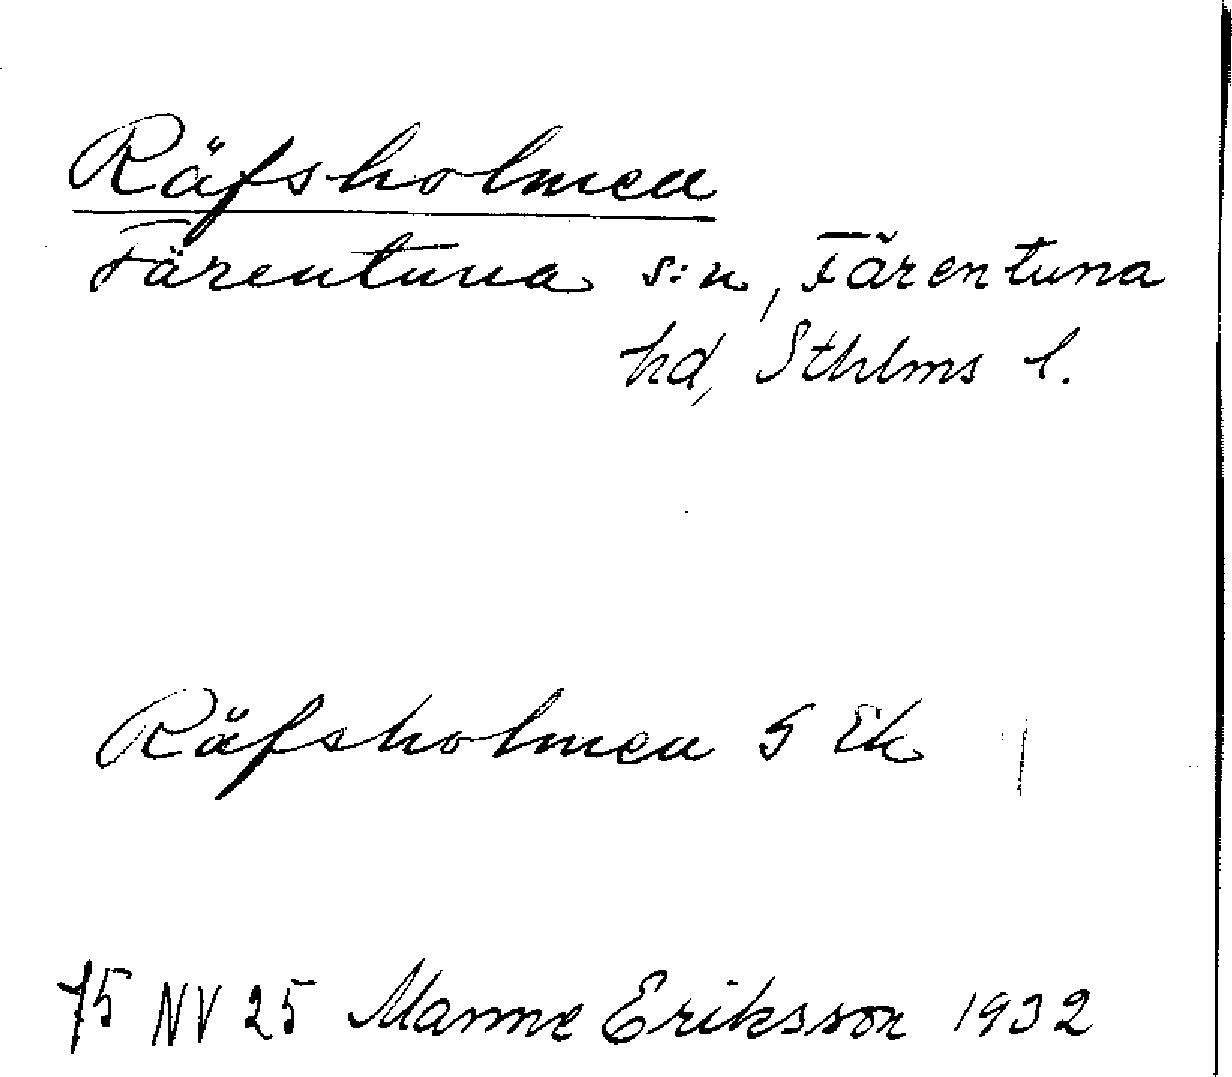 Räfsholmen
Färentuna s:n, Färentuna
hd, Sthlms l.
Räfsholmen G Ek
75 NV 25 Manne Eriksson 1932